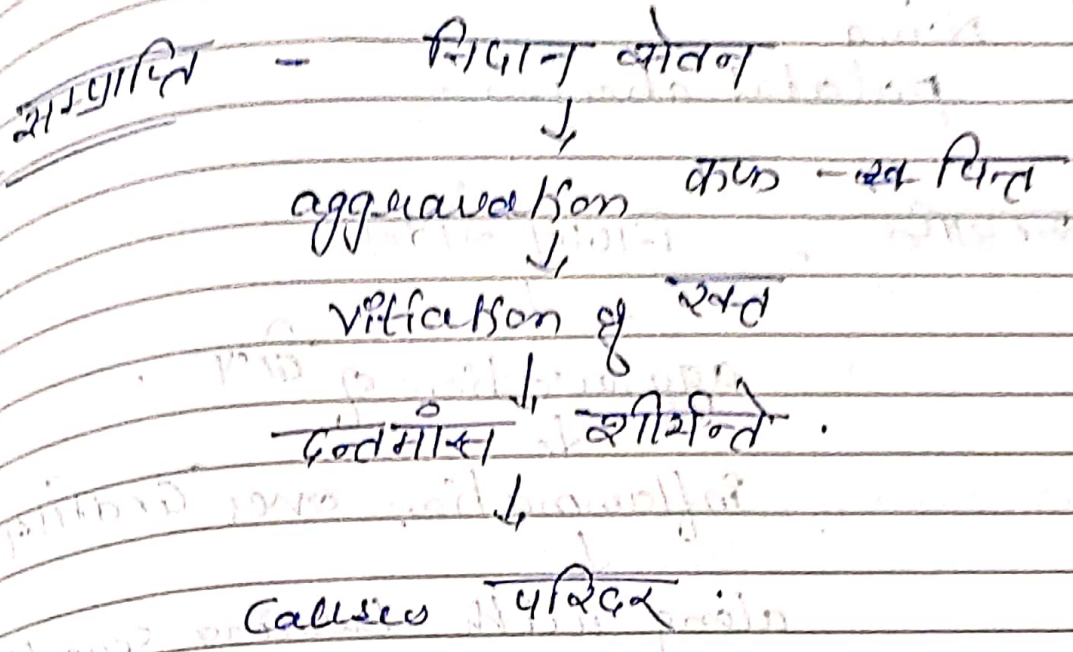 सम्प्राप्ति - निदान सेवन
↓
aggravation कफ - पित्त
↓
vitiation of रक्त
↓
दन्तमांस शीर्यन्ते .
↓
causes परिदर :